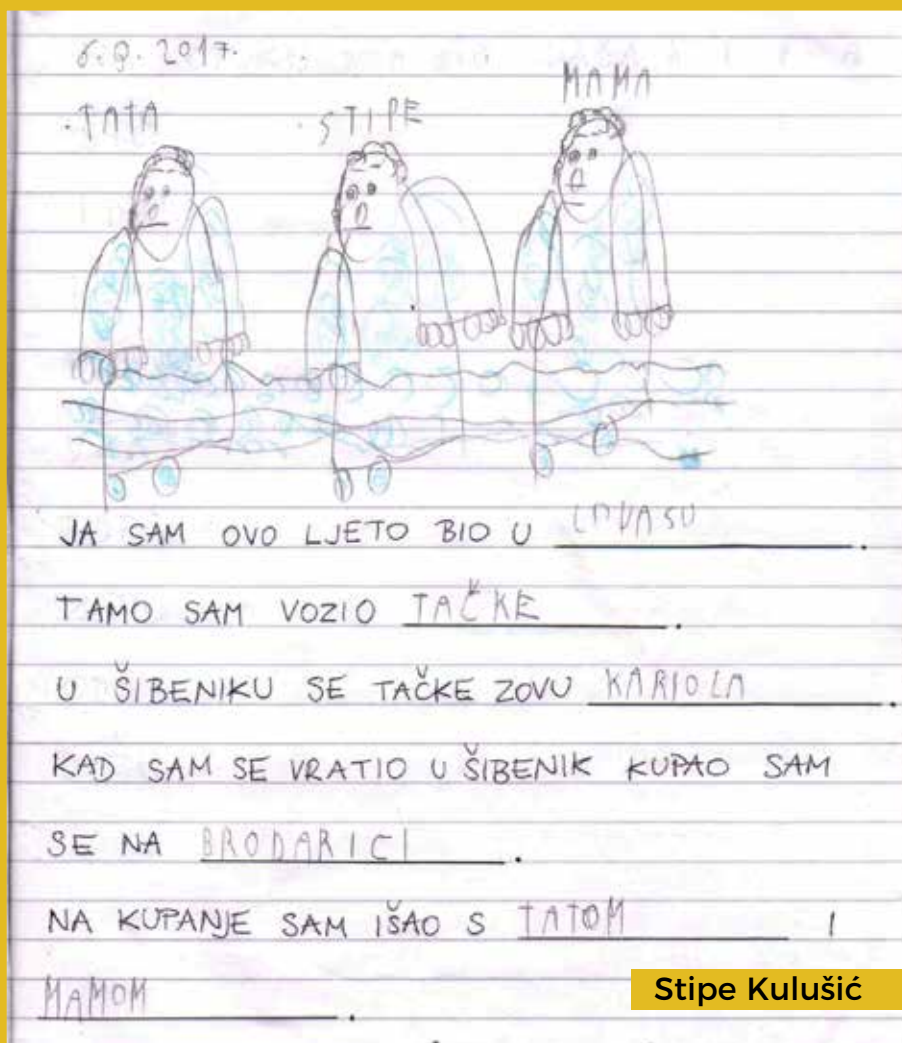 6.9. 2017.
MAMA
TATA STIPE
JA SAM OVO LJETO BIO U LOVASU.
TAMO SAM VOZIO TAČKE.
U ŠIBENIKU SE TAČKE ZOVU KARIOLA.
KAD SAM SE VRATIO U ŠIBENIK KUPAO SAM
SE NA BRODARICI.
NA KUPANJE SAM IŠAO S TATOM I
MAMOM.
Stipe Kulušić